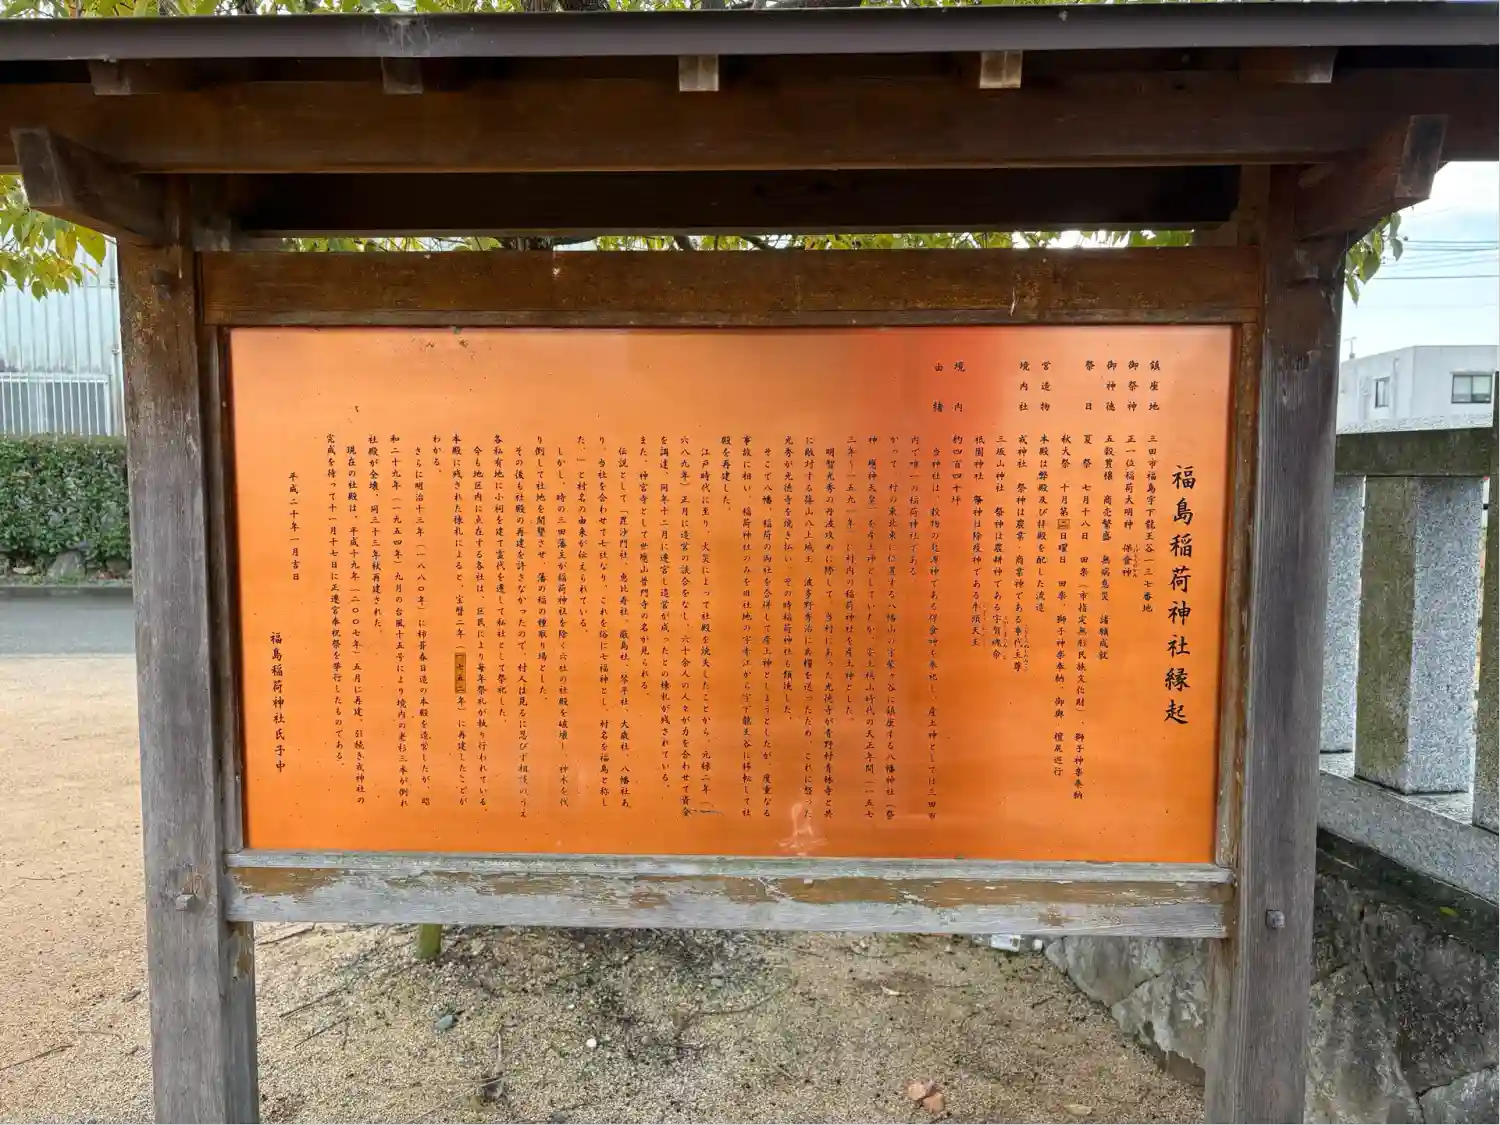 福島稲荷神社縁起
鎮座地 三田市福島字下龍王谷一三七番地
御祭神 正一位稲荷大明神 保食神
御神徳 五穀豊穣 商売繁盛 無病息災 諸願成就
祭日 夏祭 七月十八日 田楽(市指定無形民族文化財)、獅子神楽奉納
秋大祭 十月第二日曜日 田楽、獅子神楽奉納、御輿 檀尻巡行
営造物 本殿は弊殿及び拝殿を配した流造
境内社 戎神社 祭神は農業・商業神である事代主尊
三坂山神社 祭神は農耕神である宇賀魂命
祇園神社 祭神は除疫神である牛頭天王
境内 約四百四十坪
由緒 当神社は、穀物の起源神である保食神を奉祀し、産土神としては三田市
内で唯一の稲荷神社である
かって、村の東北東に位置する八幡山の字蟹ヶ谷に鎮座する八幡神社(祭
神 應神天皇)を産土神としていたが、安土桃山時代の天正年間(一五七
三年~一五九一年)に村内の稲荷神社を産土神とした。
明智光秀の丹波攻めに際して、当村にあった光徳寺が青野村青林寺と共
に敵対する篠山八上城主 波多野秀治に兵糧を送ったため、これに怒った
光秀が光徳寺を焼き払い、その時稲荷神社も類焼した。
そこで八幡、稲荷の両社を合併して産土神としようとしたが、度重なる
事故に相い、稲荷神社のみを旧社地の字青江から字下龍王谷に移転して社
殿を再建した。
江戸時代に至り、火災によって社殿を焼失したことから、元禄二年(一
六八九年)正月に造営の談合をなし、六十余人の人々が力を合わせて資金
を調達、同年十二月に遷宮し造営が成ったとの棟札が残されている。
また、神宮寺として世應山普門寺の名が見られる。
伝説として「毘沙門社、恵比寿社、厳島社、琴平社、大歳社、八幡社あ
り、当社を合わせて七社なり、これを俗に七福神とし、村名を福島と称し
た。」と村名の由来が伝えられている。
しかし、時の三田藩主が稲荷神社を除く六社の社殿を破壊し、神木を伐
り倒して社地を開墾させ、藩の稲の種取り場とした。
その後も社殿の再建を許さなかったので、村人は見るに忍びず相談のうえ
各私有地に小祠を建て霊代を遷して私社として祭祀した。
今も地区内に点在する各社は、区民により毎年祭礼が執り行われている。
本殿に残された棟札によると、宝暦二年(一七五二年)に再建したことが
わかる。
さらに明治十三年(一八八〇年)に柿葺春日造の本殿を造営したが、昭
和二十九年(一九五四年)九月の台風十五号により境内の老杉三本が倒れ
社殿が全壊、同三十三年秋再建された。
現在の社殿は、平成十九年(二〇〇七年)五月に再建、引続き戎神社の
完成を待って十一月十七日に正遷宮奉祝祭を挙行したものである。
平成二十年一月吉日
福島稲荷神社氏子中